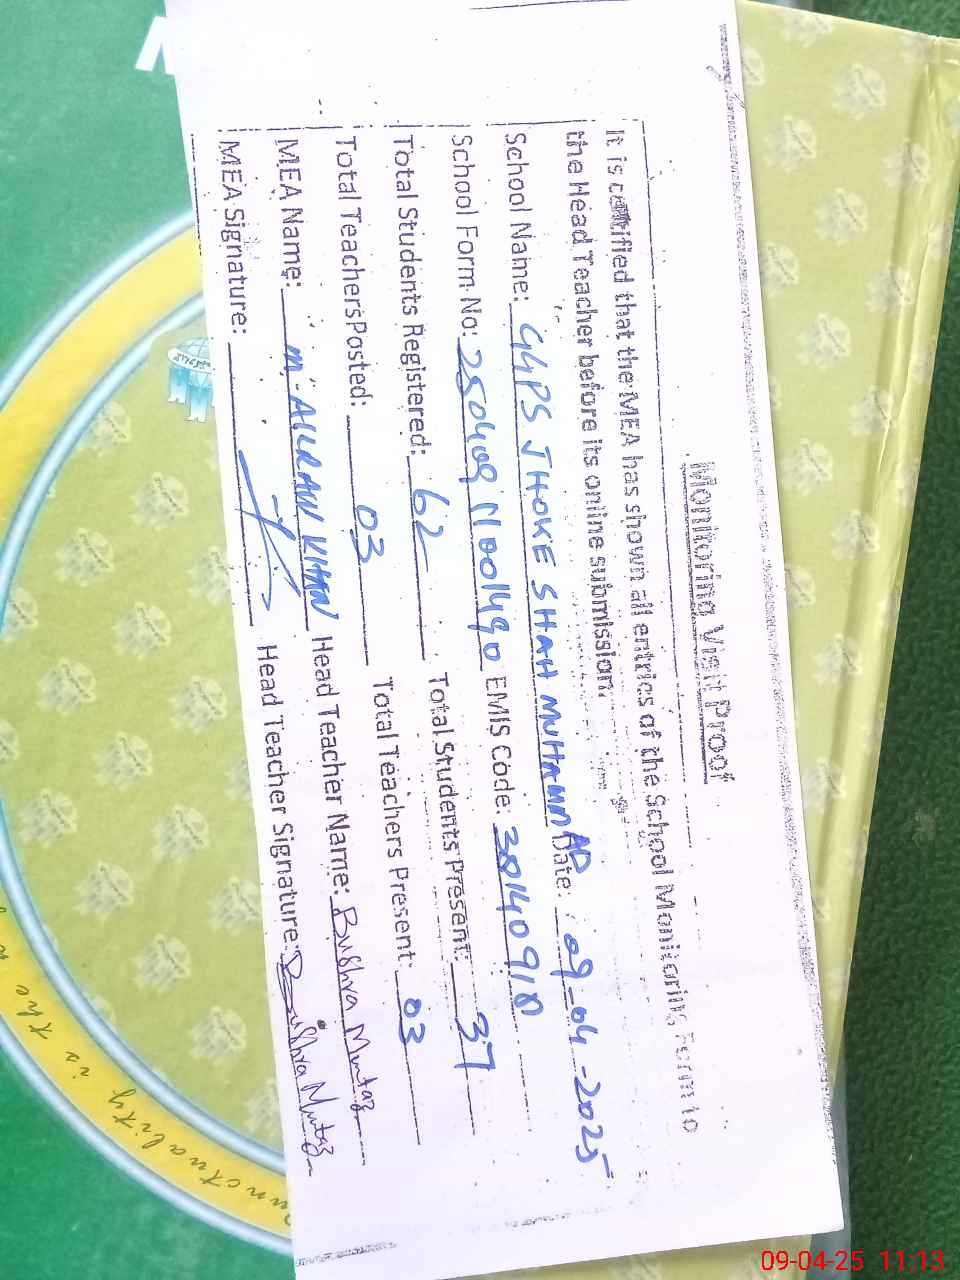 Monitoring Visit Proof
It is certified that the MEA has shown all entries of the School Monitoring Form to
the Head Teacher before its online submission.
School Name: GGPS JHOKE SHAH MUHAMMAD Date: 09-04-2025
School Form No: 250409 N001490 EMIS Code:
Total Students Registered: 62 Total Students Present: 37
Total Teachers Posted: 03 Total Teachers Present: 03
MEA Name: M. AKRAM KHAN Head Teacher Name: Bushra Mumtaz
MEA Signature: Head Teacher Signature: Bushra Mumtaz
Punctuality is the
09-04-25 11:13